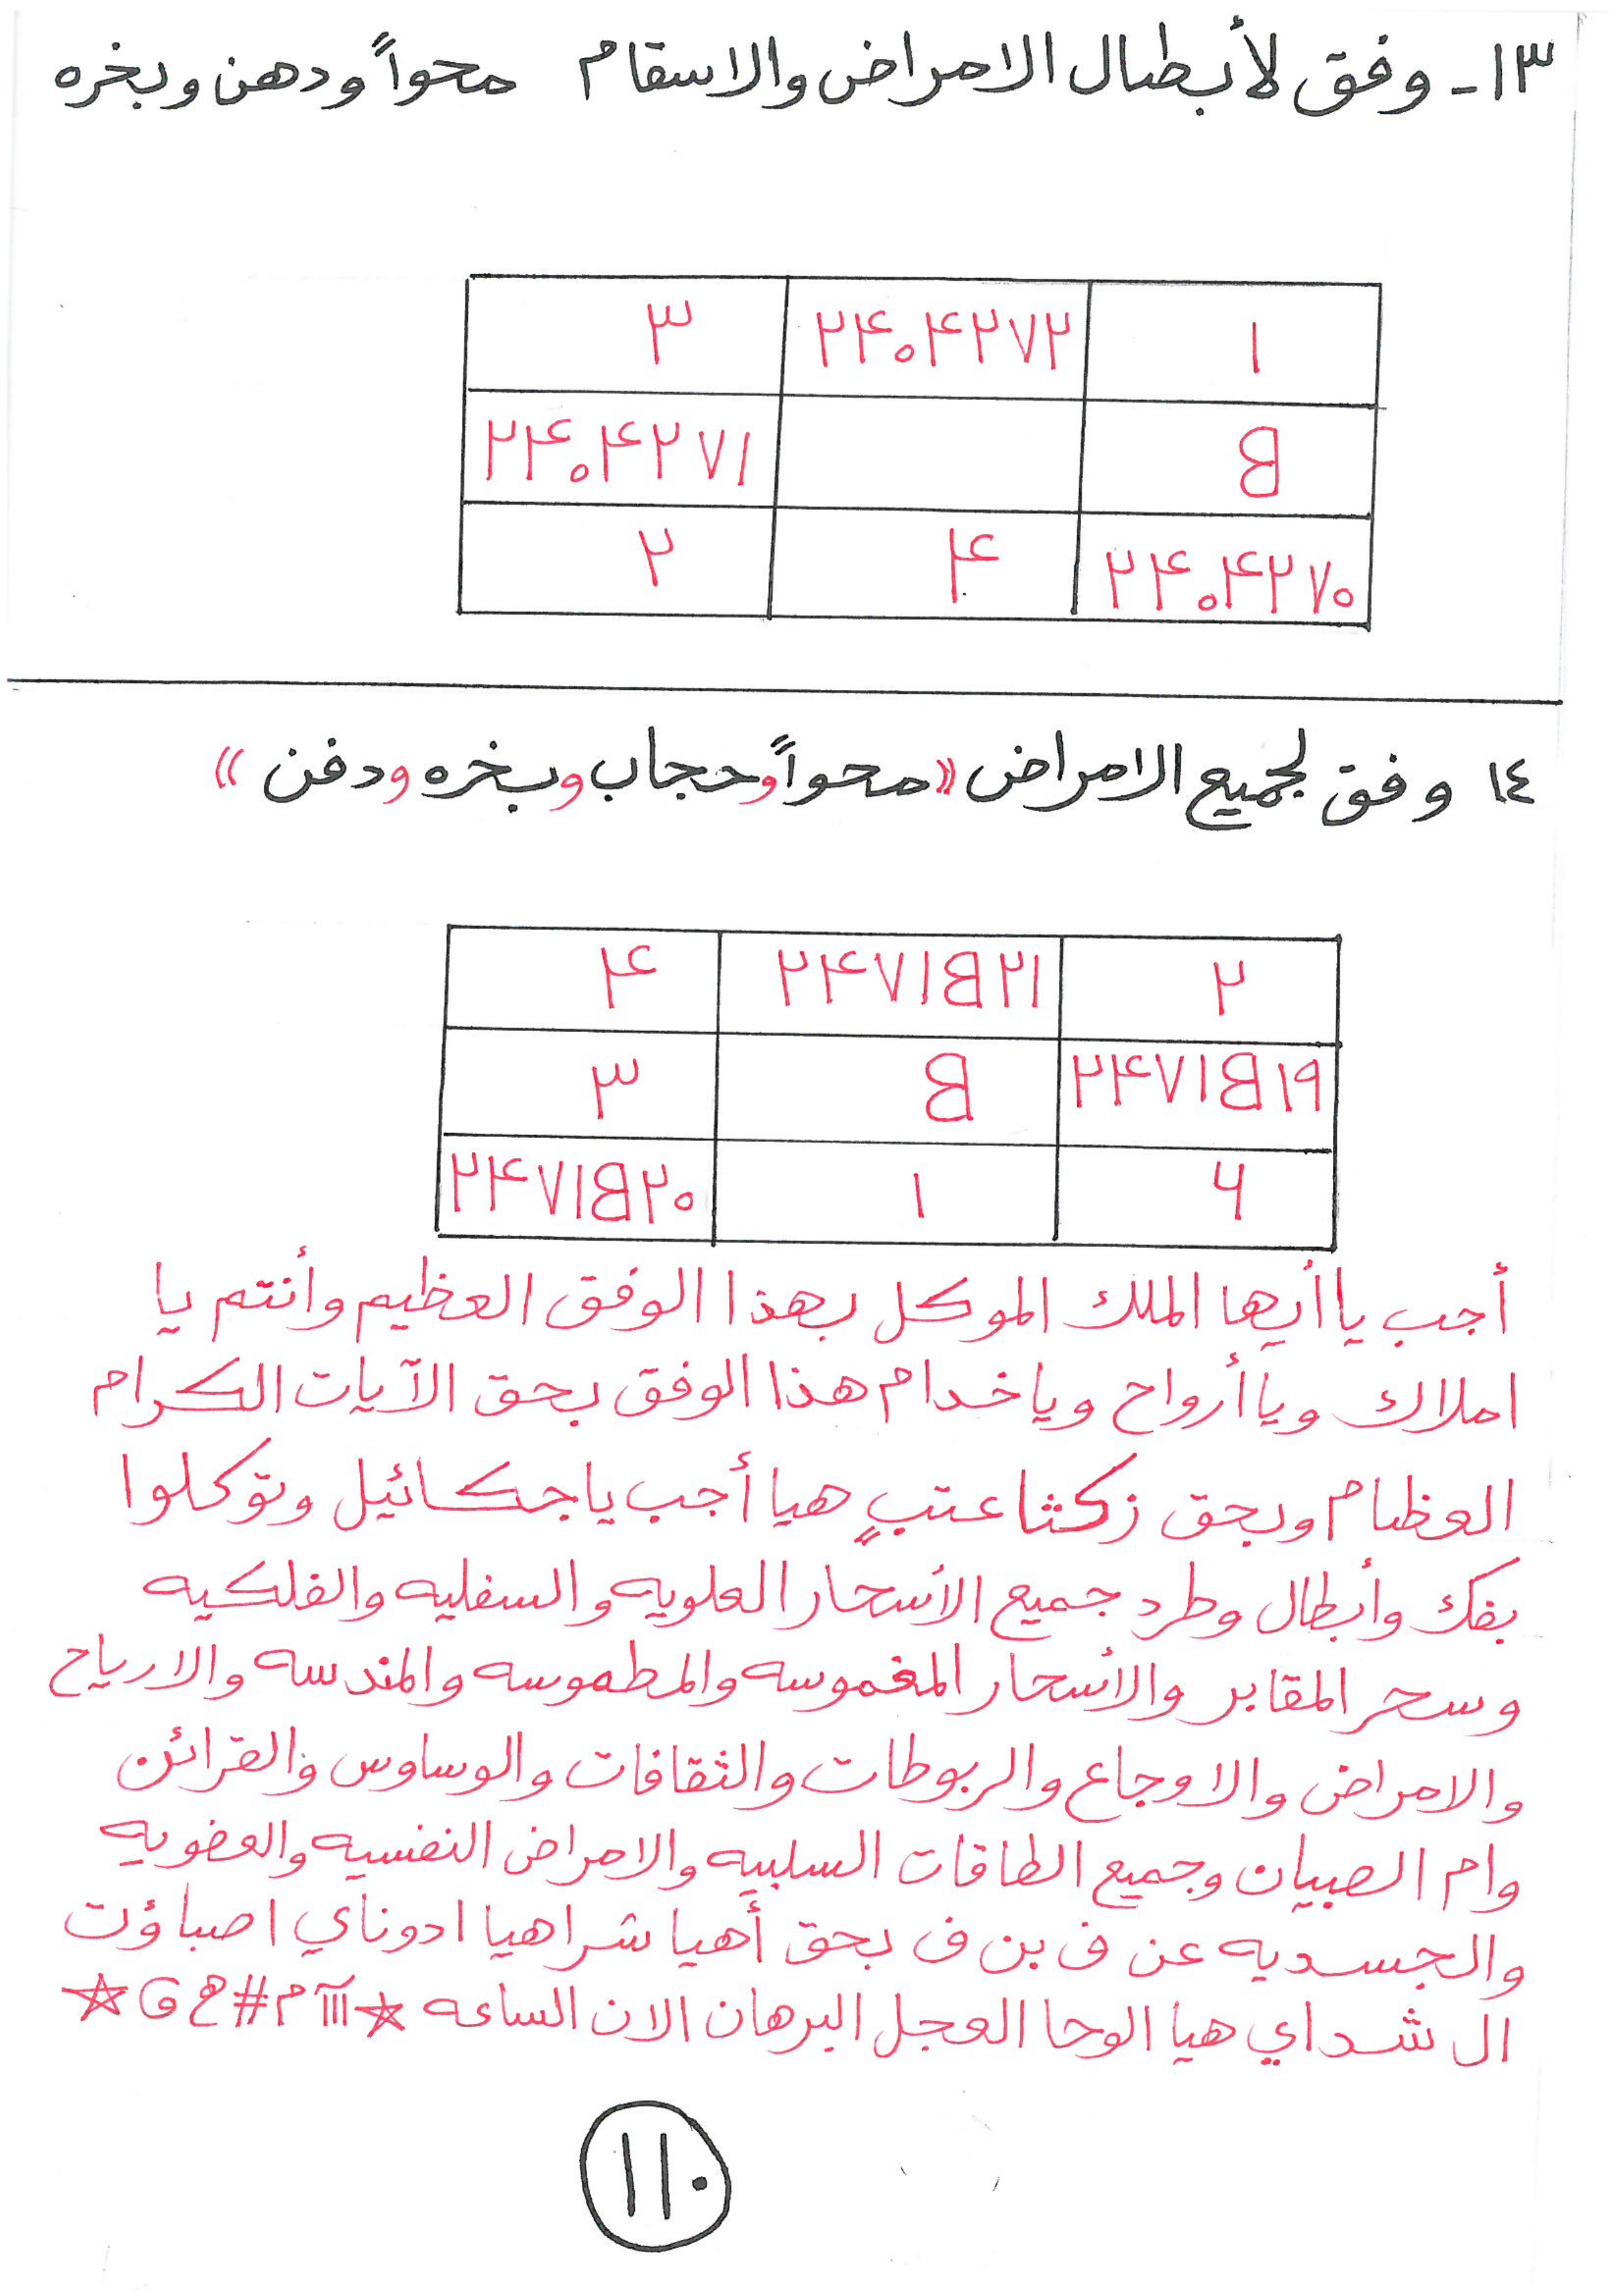 ١٣- وفق لأبطال الامراض والاسقام محواً ودهن وبخره
١ ٢٤٠٤٢٧٢ ٣
B ٢٤٠٤٢٧١
٢٤٠٤٢٧٠ ٤ ٢
١٤ وفق لجميع الامراض ((محواً وحجاب وبخره ودفن))
٢ ٢٤٧١B٢١ ٤
٢٤٧١B١٩ B ٣
٦ ١ ٢٤٧١B٢٠
أجب يا أيها الملك الموكل بهذا الوفق العظيم وأنتم يا
املاك ويا أرواح ويا خدام هذا الوفق بحق الآيات الكرام
العظام وبحق زكثا عتبٍ هيا أجب يا جكائيل وتوكلوا
بفك وأبطال وطرد جميع الأسحار العلويه والسفليه والفلكيه
وسحر المقابر والأسحار المغموسه والمطموسه والمندسه والارياح
والامراض والاوجاع والربوطات والثقافات والوساوس والقرائن
وام الصبيان وجميع الطاقات السلبيه والامراض النفسيه والعضويه
والجسديه عن ف بن ف بحق أهيا شراهيا ادوناي اصباؤت
ال شداي هيا الوحا العجل البرهان الان الساعه
١١٠